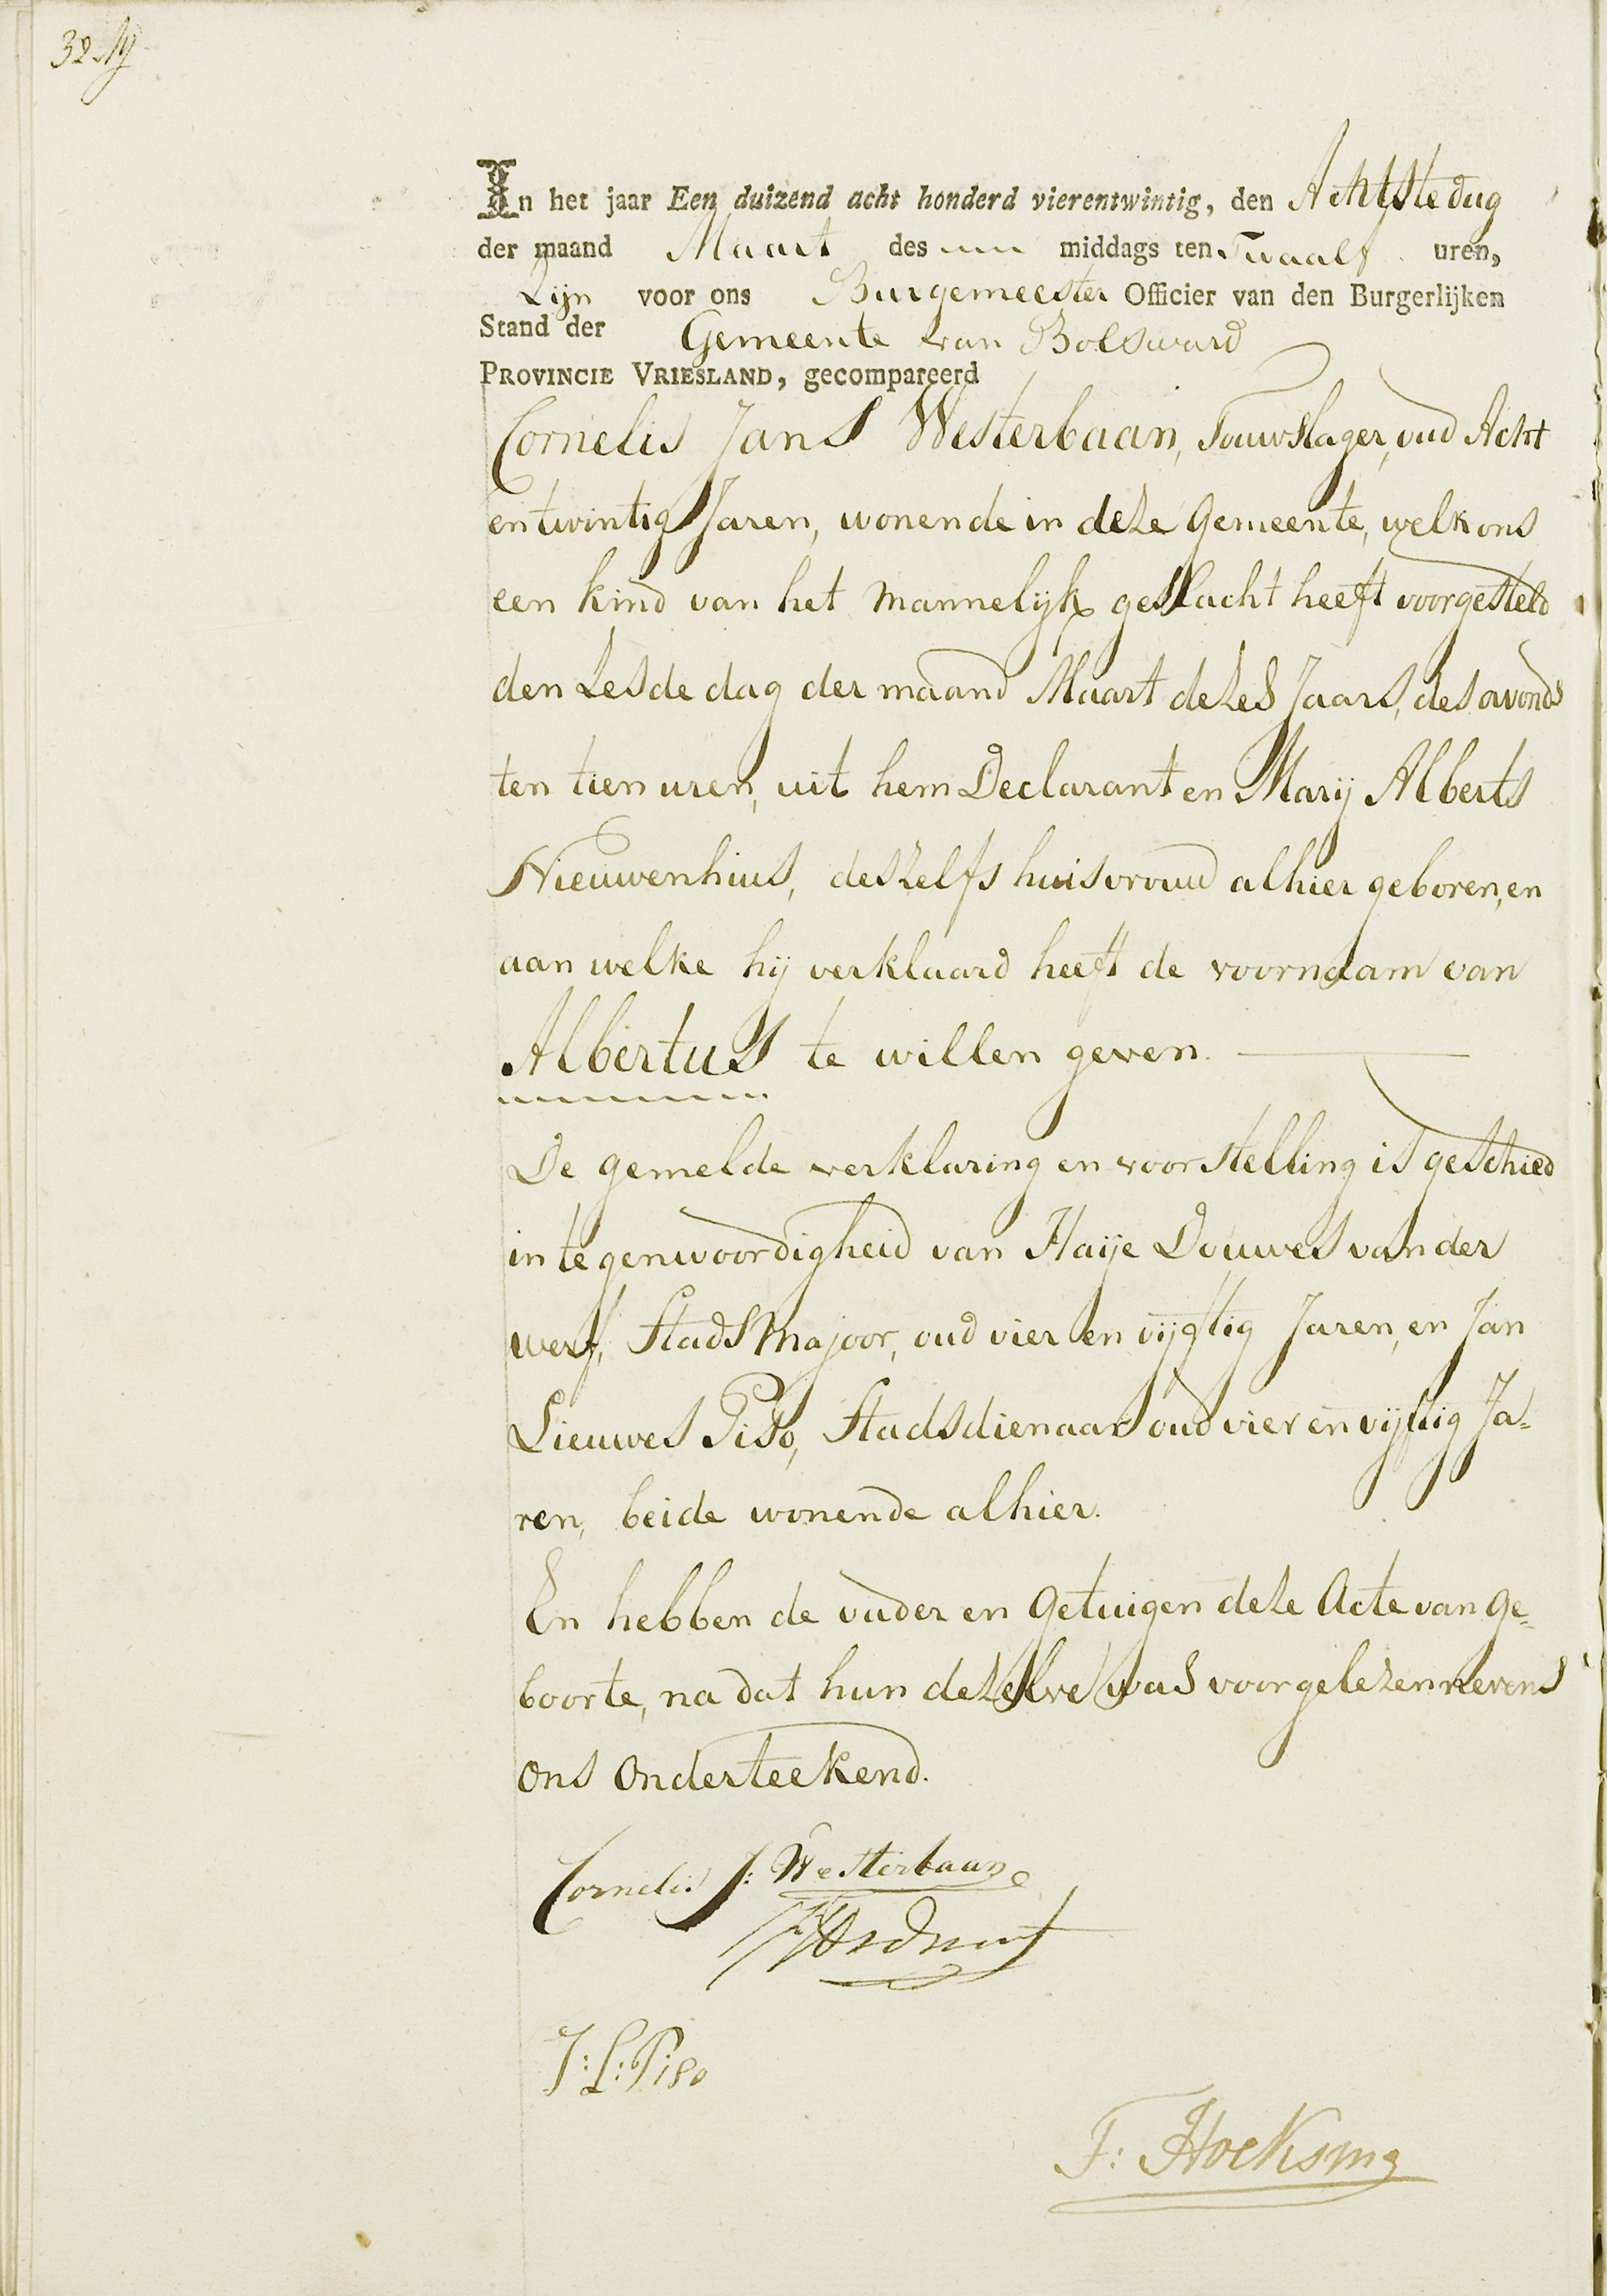 32
In het jaar Een duizend acht honderd vierentwintig, den Achtste dag
der maand Maart des middags ten Twaalf uren,
Zijn voor ons Burgemeester Officier van den Burgerlijken
Stand der Gemeente van Bolsward
PROVINCIE VRIESLAND, gecompareerd
Cornelis Jans Westerbaan, Touwslager, oud Acht
entwintig Jaren, wonende in deze Gemeente, welk ons
een kind van het Mannelijk geslacht heeft voorgesteld
den Zesde dag der maand Maart dezes Jaars, des avonds
ten tien uren, uit hem Declarant en Marij Alberts
Nieuwenhuis, deszelfs huisvrouw alhier geboren, en
aan welke hij verklaard heeft de voornaam van
Albertus te willen geven.
De gemelde verklaring en voorstelling is geschied
in tegenwoordigheid van Haije Douwes van der
werf, Stads Majoor, oud vier en vijftig Jaren, en Jan
Lieuwes Piso, Stadsdienaar oud vier en vijftig Ja=
ren, beide wonende alhier.
En hebben de vader en Getuigen deze Acte van Ge=
boorte, na dat hun dezelve was voorgelezen nevens
ons Onderteekend.
Cornelis J: Westerbaan
J: L: Piso
F: Hoeksma